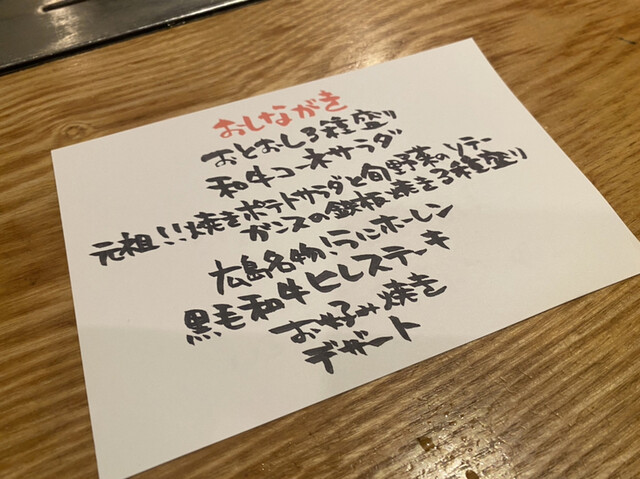 おしながき
おとおし3種盛り
和牛コーネサラダ
元祖!!焼きポテトサラダと旬野菜のソテー
ガンスの鉄板焼き3種盛り
広島名物!ウニホーレン
黒毛和牛ヒレステーキ
お好み焼き
デザート